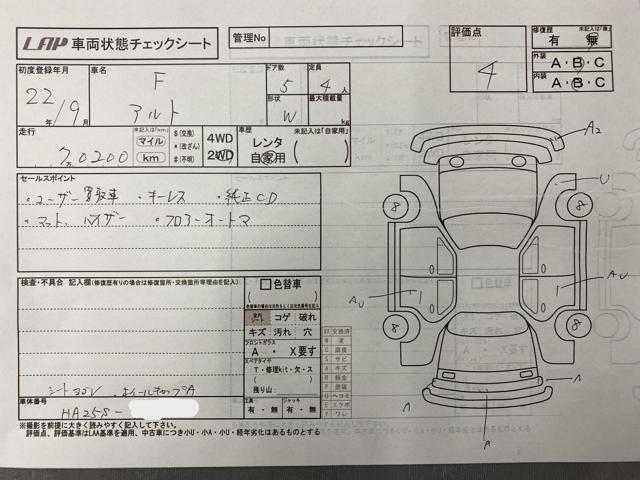 LAP 車両状態チェックシート
管理No
評価点
4
修復歴
未記入は「無」
有 無
外装
A・B・C
内装
A・B・C
初度登録年月
22年/9月
車名
F
アルト
ドア数
5
定員
4人
形状
W
最大積載量
kg
走行
20200
未記入は「km」
マイル
km
$(交換)
*(改ざん)
#(不明)
4WD
2WD
車歴
未記入は「自家用」
レンタ
自家用
セールスポイント
・ユーザー買取車 ・キーレス ・純正CD
・マット、バイザー ・フロアーオートマ
検査・不具合 記入欄(修復歴有りの場合は修復箇所・交換箇所等理由を記入)
シートヨゴレ ホイールキャップA
色替車
室内
シート
コゲ 破れ
キズ 汚れ 穴
フロントガラス
A ・ X要す
スペアタイヤ
T・修理kit・欠・ス
残り山
工具
有・無
ジャッキ
有・無
XX 交換済
W 波
C 腐食
S サビ
A キズ
B 板金
P 塗装
U ヘコミ
E エクボ
ワレ
車体番号
HA25S-
※撮影を前提に大きく読みやすく記入して下さい。
評価点、評価基準はLAA基準を適用、中古車につき小U・小A・小U・経年劣化はあるものとする
A2
U
8
8
AU
AU
8
8
A
A
A